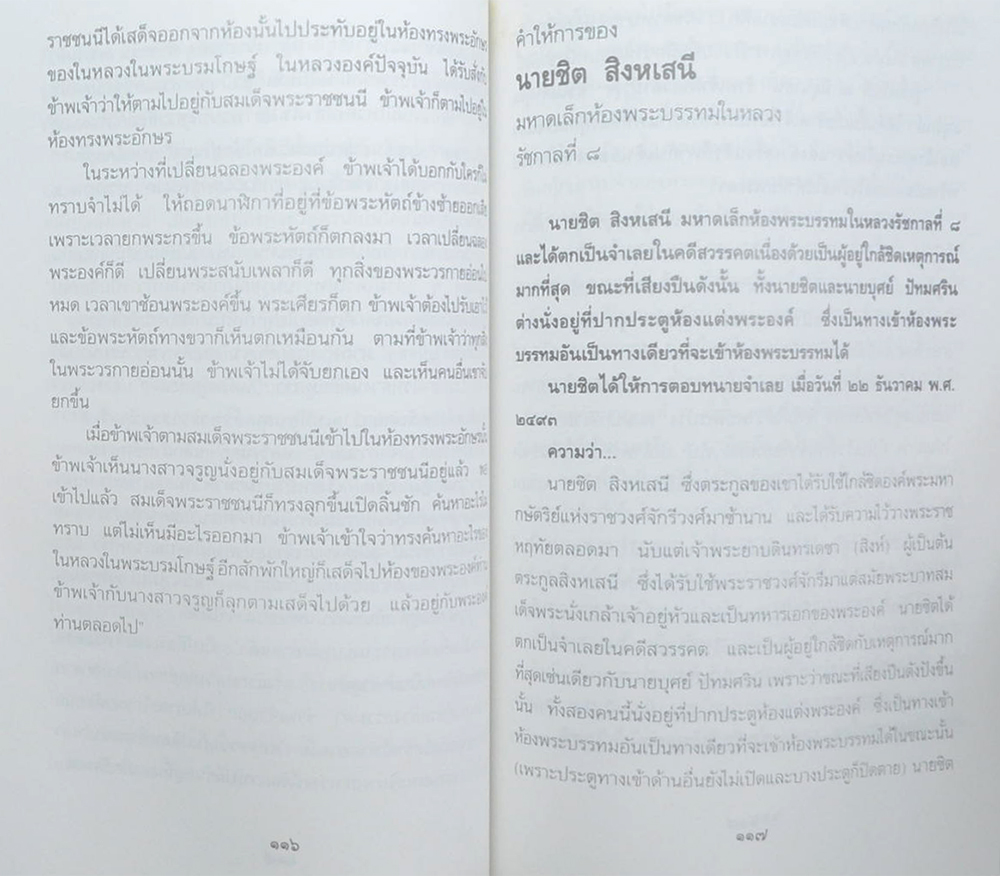 ราชชนนีได้เสด็จออกจากห้องนั้นไปประทับอยู่ในห้องทรงพระอักษร
ของในหลวงในพระบรมโกษฐ์ ในหลวงองค์ปัจจุบัน ได้รับสั่งกับ
ข้าพเจ้าว่าให้ตามไปอยู่กับสมเด็จพระราชชนนี ข้าพเจ้าก็ตามไปอยู่ใน
ห้องทรงพระอักษร
ในระหว่างที่เปลี่ยนฉลองพระองค์ ข้าพเจ้าได้บอกกับใคร
ทราบจำไม่ได้ ให้ถอดนาฬิกาที่อยู่ที่ข้อพระหัตถ์ข้างซ้ายออก
เพราะเวลายกพระกรขึ้น ข้อพระหัตถ์ก็ตกลงมา เวลาเปลี่ยน
พระองค์ก็ดี เปลี่ยนพระสนับเพลาก็ดี ทุกสิ่งของพระวรกายอ่อน
หมด เวลาเขาช้อนพระองค์ขึ้น พระเศียรก็ตก ข้าพเจ้าต้องไปรับ
และข้อพระหัตถ์ทางขวาก็เห็นตกเหมือนกัน ตามที่ข้าพเจ้าว่า
ในพระวรกายอ่อนนั้น ข้าพเจ้าไม่ได้จับยกเอง และเห็นคนอื่นเขา
ยกขึ้น
เมื่อข้าพเจ้าตามสมเด็จพระราชชนนีเข้าไปในห้องทรงพระอักษร
ข้าพเจ้าเห็นนางสาวจรูญนั่งอยู่กับสมเด็จพระราชชนนีอยู่แล้ว
เข้าไปแล้ว สมเด็จพระราชชนนีก็ทรงลุกขึ้นเปิดลิ้นชัก ค้นหาอะไร
ทราบ แต่ไม่เห็นมีอะไรออกมา ข้าพเจ้าเข้าใจว่าทรงค้นหา
ในหลวงในพระบรมโกษฐ์ อีกสักพักใหญ่ก็เสด็จไปห้องของพระองค์
ข้าพเจ้ากับนางสาวจรูญก็ลุกตามเสด็จไปด้วย แล้วอยู่กับพระองค์
ท่านตลอดไป"
๑๑๖
คำให้การของ
นายชิต สิงหเสนี
มหาดเล็กห้องพระบรรทมในหลวง
รัชกาลที่ ๘
นายชิต สิงหเสนี มหาดเล็กห้องพระบรรทมในหลวงรัชกาลที่ ๘
และได้ตกเป็นจำเลยในคดีสวรรคตเนื่องด้วยเป็นผู้อยู่ใกล้ชิดเหตุการณ์
มากที่สุด ขณะที่เสียงปืนดังนั้น ทั้งนายชิตและนายบุศย์ ปัทมศริน
ต่างนั่งอยู่ที่ปากประตูห้องแต่งพระองค์ ซึ่งเป็นทางเข้าห้องพระ
บรรทมอันเป็นทางเดียวที่จะเข้าห้องพระบรรทมได้
นายชิตได้ให้การตอบทนายจำเลย เมื่อวันที่ ๒๒ ธันวาคม พ.ศ.
๒๔๙๓
ความว่า...
นายชิต สิงหเสนี ซึ่งตระกูลของเขาได้รับใช้ใกล้ชิดองค์พระมหา
กษัตริย์แห่งราชวงศ์จักรีวงศ์มาช้านาน และได้รับความไว้วางพระราช
หฤทัยตลอดมา นับแต่เจ้าพระยาบดินทรเดชา (สิงห์) ผู้เป็นต้น
ตระกูลสิงหเสนี ซึ่งได้รับใช้พระราชวงศ์จักรีมาแต่สมัยพระบาทสม
เด็จพระนั่งเกล้าเจ้าอยู่หัวและเป็นทหารเอกของพระองค์ นายชิตได้
ตกเป็นจำเลยในคดีสวรรคต และเป็นผู้อยู่ใกล้ชิดกับเหตุการณ์มาก
ที่สุดเช่นเดียวกับนายบุศย์ ปัทมศริน เพราะว่าขณะที่เสียงปืนดังปังขึ้น
นั้น ทั้งสองคนนี้นั่งอยู่ที่ปากประตูห้องแต่งพระองค์ ซึ่งเป็นทางเข้า
ห้องพระบรรทมอันเป็นทางเดียวที่จะเข้าห้องพระบรรทมได้ในขณะนั้น
(เพราะประตูทางเข้าด้านอื่นยังไม่เปิดและบางประตูก็ปิดตาย) นายชิต
๑๑๗